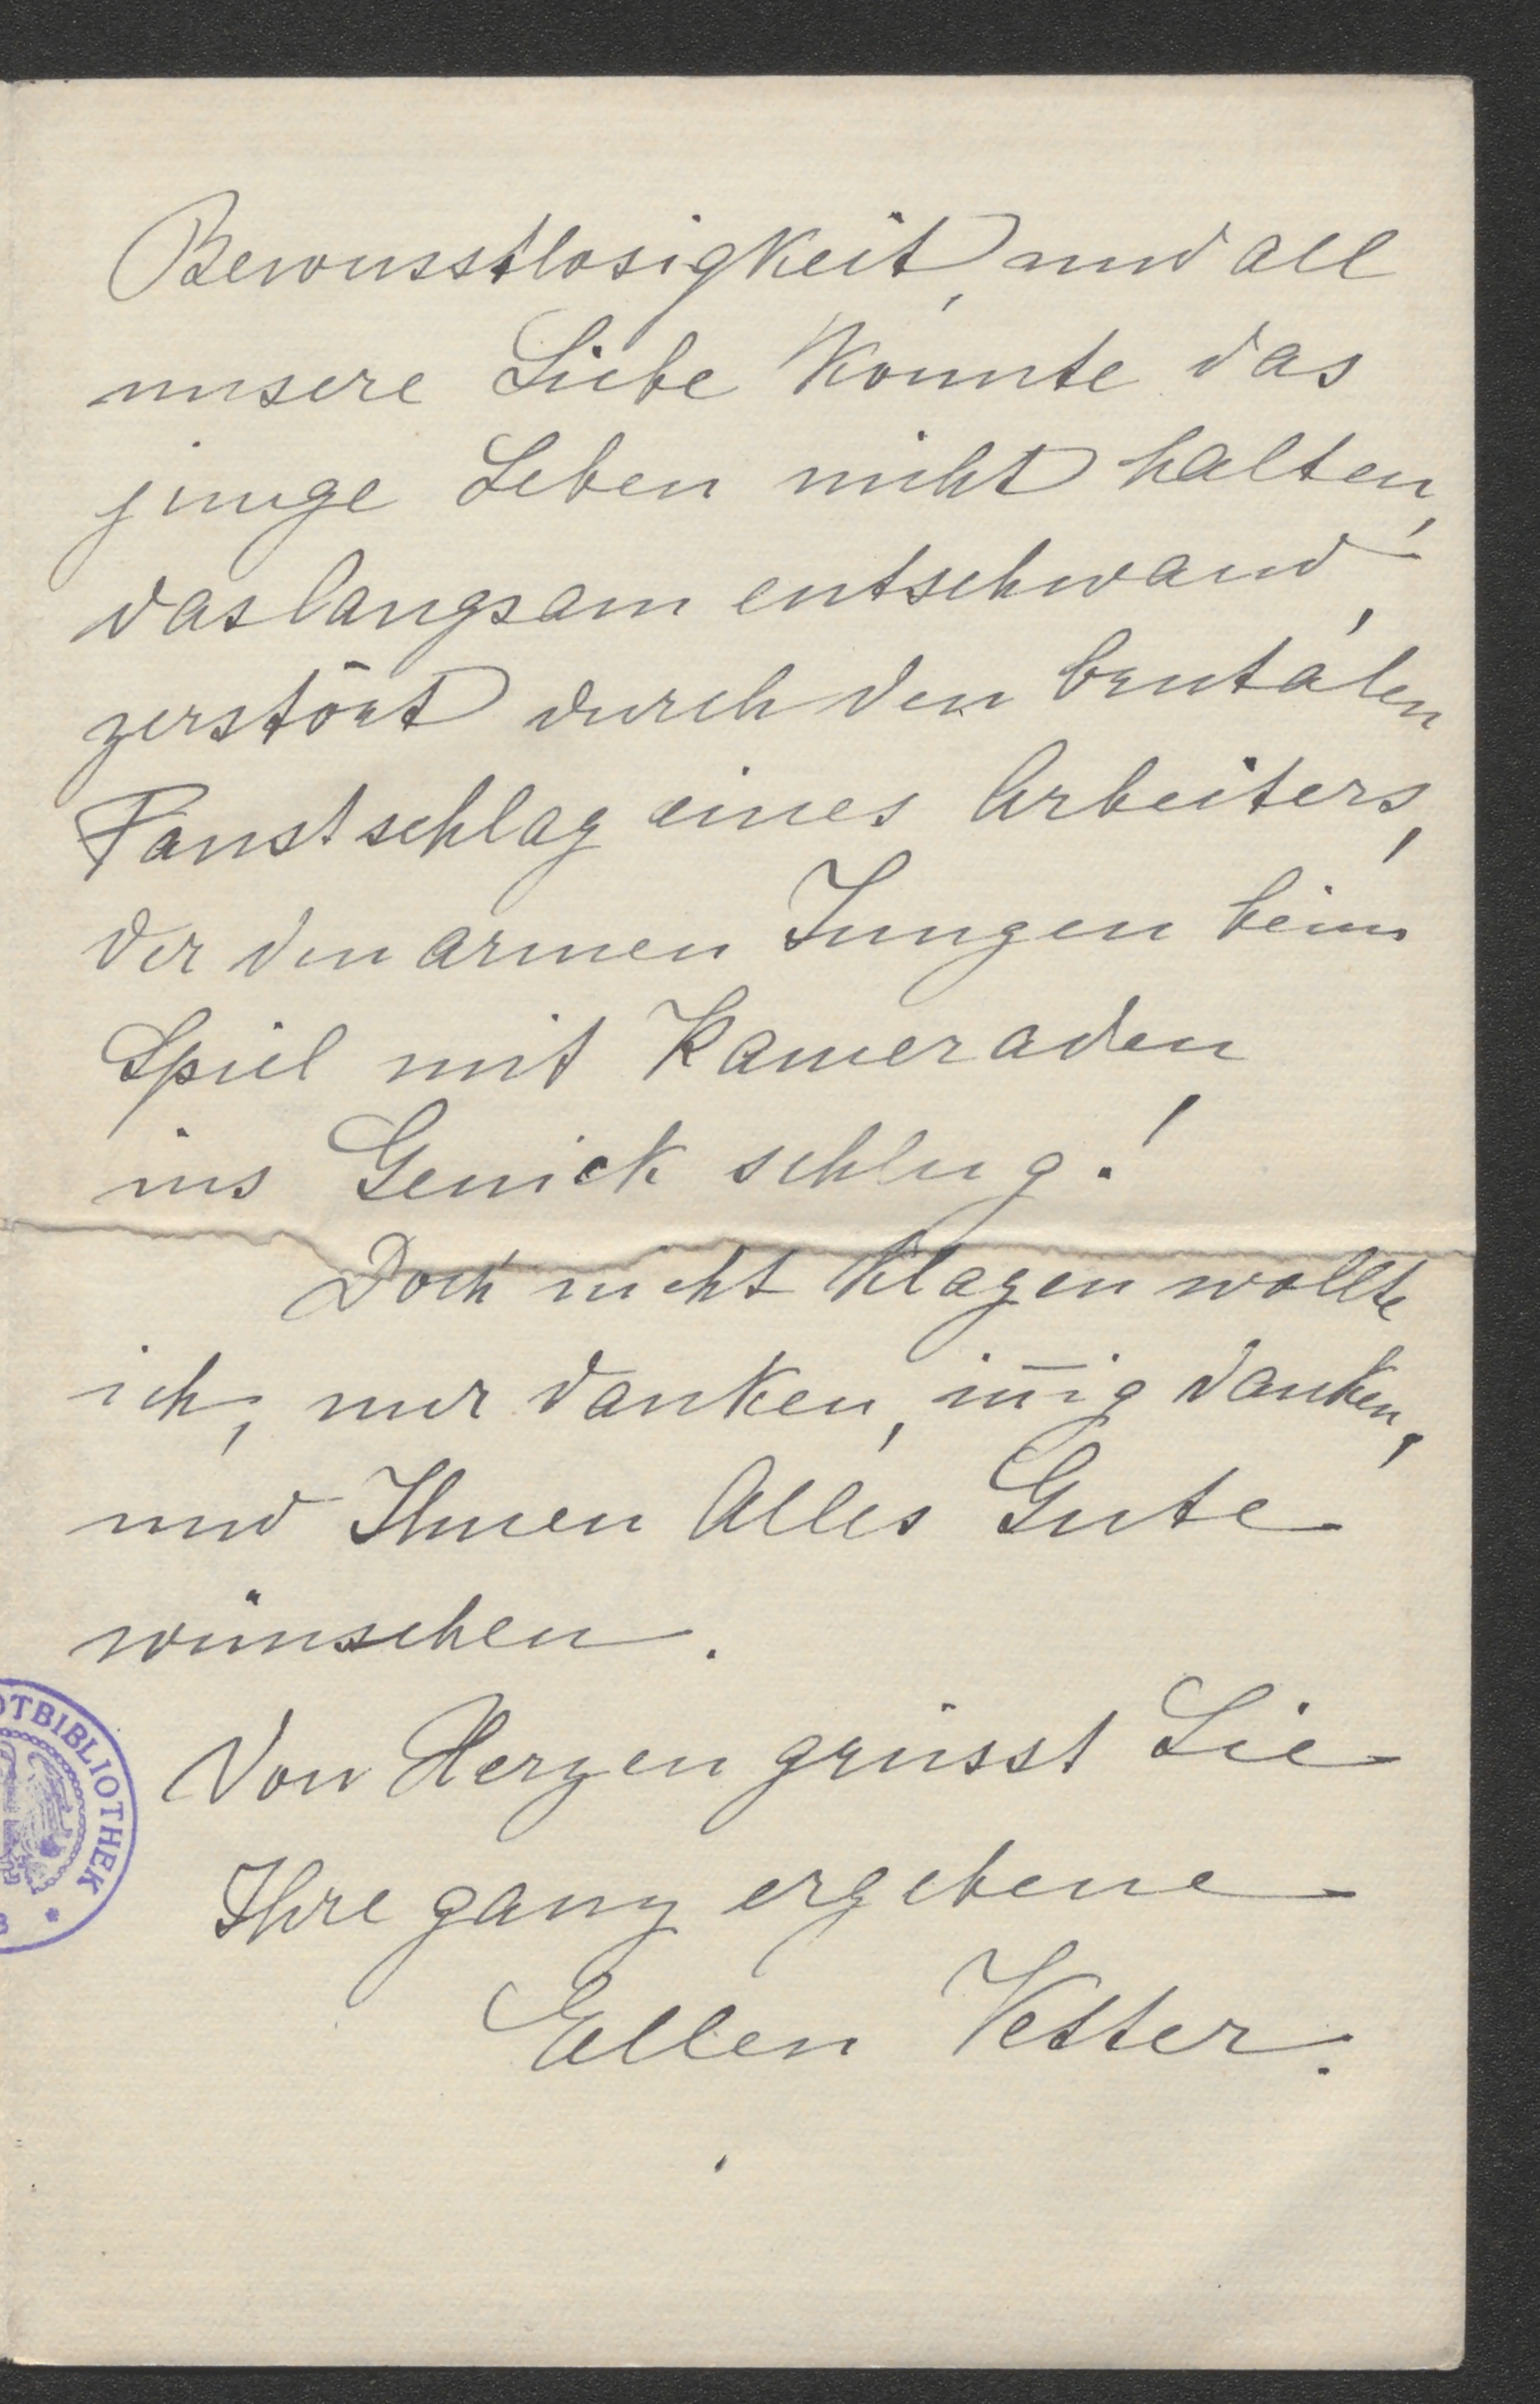 Bewusstlosigkeit, und all
unsere Liebe konnte das
junge Leben nicht halten,
das langsam entschwand,
zerstört durch den brutalen
Faustschlag eines Arbeiters,
der den armen Jungen beim
Spiel mit Kameraden
ins Genick schlug!
Doch nicht klagen wollte
ich, nur danken, iñig danken,
und Ihnen Alles Gute
wünschen.
Von Herzen grüsst Sie
Ihre ganz ergebene
Ellen Vetter.
DTBIBLIOTHEK